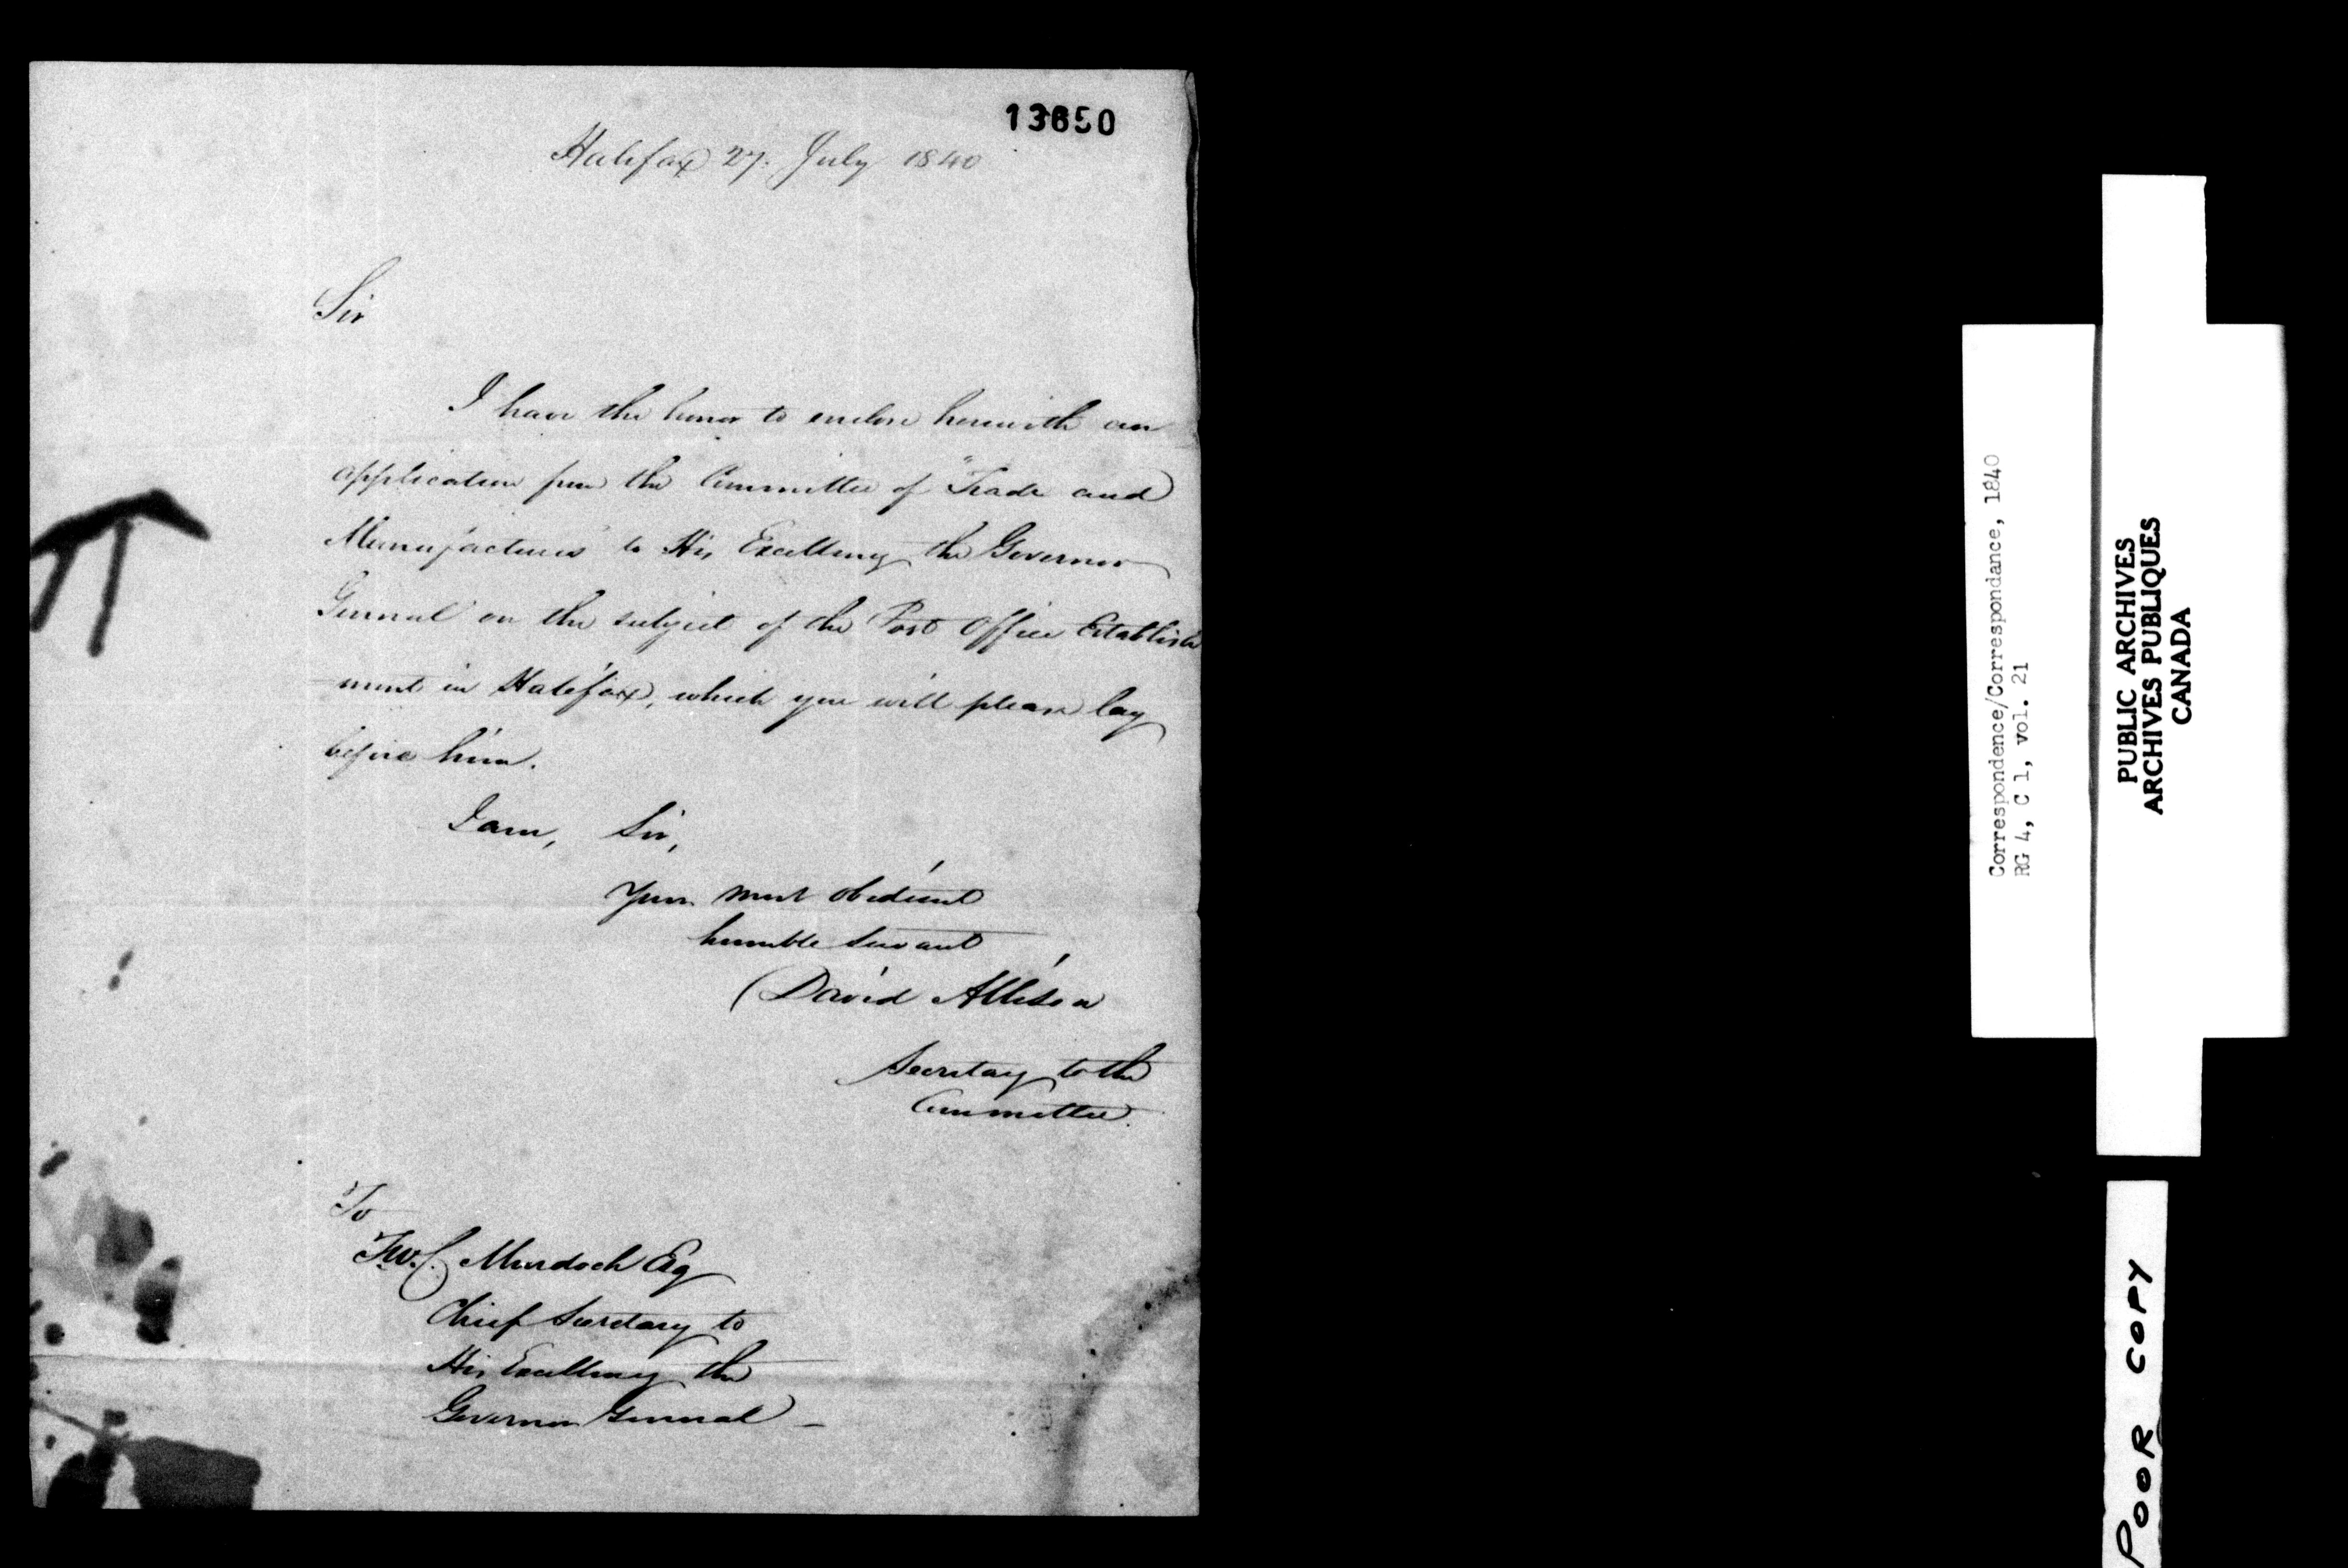 13650
Halifax 27. July 1840
Sir
I have the honor to enclose herewith an
application from the Committee of "Trade and
Manufactures" to His Excellency the Governor
General on the subject of the Post Office Establish
-ment in Halifax, which you will please lay
before him.
I am, Sir,
Your most obedient
humble servant
(David Allison
Secretary to the
Committee.
To
T.W.C. Murdoch Esq
Chief Secretary to
His Excellency the
Governor General –
Correspondence/Correspondance, 1840
RG 4, C 1, vol. 21
PUBLIC ARCHIVES
ARCHIVES PUBLIQUES
CANADA
POOR COPY